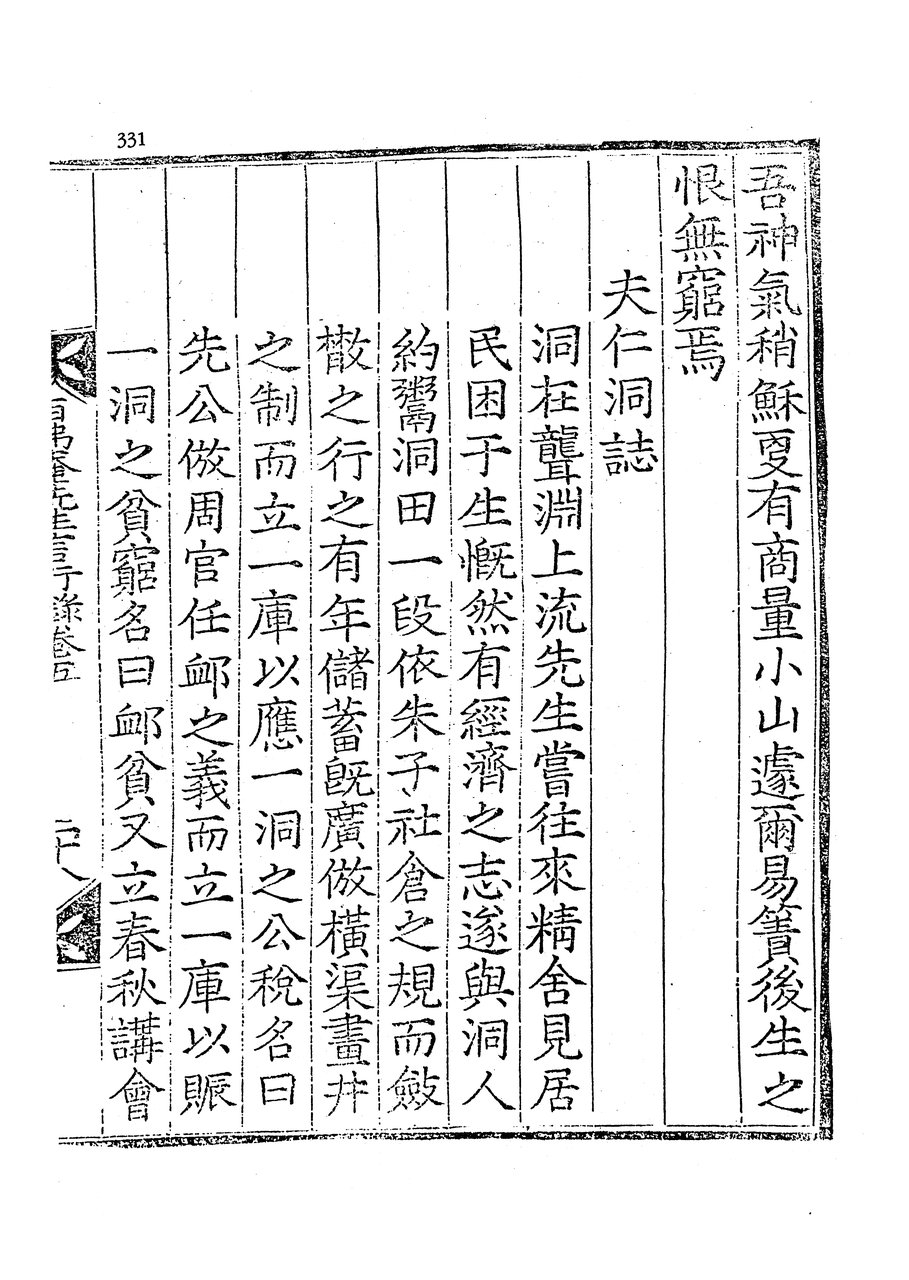 331
吾神氣稍穌更有商量小山遽爾易簀後生之
恨無窮焉
夫仁洞誌
洞在聾淵上流先生嘗往來精舍見居
民困于生慨然有經濟之志遂與洞人
約鬻洞田一段依朱子社倉之規而斂
散之行之有年儲蓄旣廣倣橫渠畫井
之制而立一庫以應一洞之公稅名曰
先公倣周官任卹之義而立一庫以賑
一洞之貧窮名曰卹貧又立春秋講會
百弗菴先生言行錄卷五
二十八